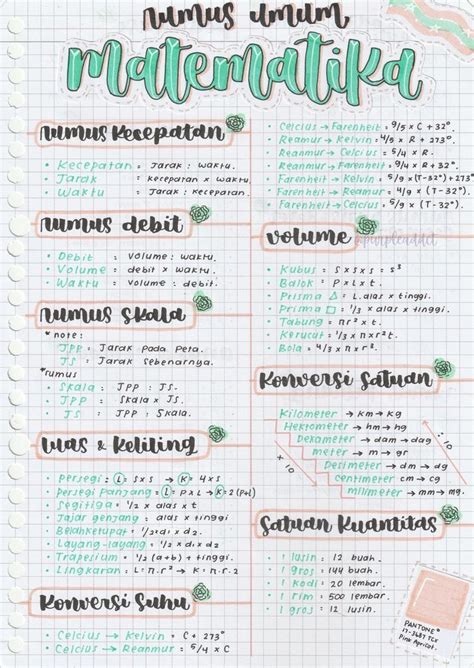 rumus umum
matematika
rumus kecepatan
• Kecepatan = Jarak : waktu.
• Jarak = kecepatan x waktu.
• Waktu = Jarak : kecepatan.
rumus debit
• Debit = volume : waktu.
• Volume = debit x waktu.
• Waktu = volume : debit.
rumus skala
*note:
JPP = Jarak pada Peta.
JS = Jarak Sebenarnya.
*rumus
• Skala = JPP : JS.
• JPP = Skala x JS.
• JS = JPP : Skala.
luas & Keliling
• Persegi : L = s x s → K = 4 x s
• Persegi Panjang : L = p x L → K = 2(p+L)
• Segitiga = 1/2 x alas x tinggi
• Jajar genjang = alas x tinggi
• Belahketupat = 1/2 x d1 x d2.
• Layang-layang = 1/2 x d1 x d2
• Trapesium = 1/2 (a+b) + tinggi.
• Lingkaran : L = π.r² → K = π.r.r
Konversi Suhu
• Celcius → Kelvin = C + 273°
• Celcius → Reamur = 5/4 x C
• Celcius → Farenheit = 9/5 x C + 32°
• Reamur → Kelvin = 4/5 x R + 273°.
• Reanmur → Celcius = 5/4 x R.
• Reanmur → Farenheit = 9/4 x R + 32°.
• Farenheit → Kelvin = 5/9 x (T-32°) + 273°
• Farenheit → Reamur = 4/9 x (T-32°).
• Farenheit → Celcius = 5/9 x (T-32°).
volume
@purpleaddct
• Kubus = s x s x s = s³
• Balok = P x L x t.
• Prisma △ = L.alas x tinggi.
• Prisma □ = 1/3 x alas x tinggi.
• Tabung = π r² x t.
• Kerucut = 1/3 x π x r² x t.
• Bola = 4/3 x π x r³.
Konversi Satuan
Kilometer → km → kg
Hektometer → hm → hg
Dekameter → dam → dag
meter → m → gr
Desimeter → dm → dg
centimeter → cm → cg
milimeter → mm → mg.
: 10
x 10
Satuan Kuantitas
• 1 lusin = 12 buah.
• 1 gros = 144 buah.
• 1 kodi = 20 lembar.
• 1 rim = 500 lembar.
• 1 gros = 12 lusin.
PANTONE®
Pink Apricot.